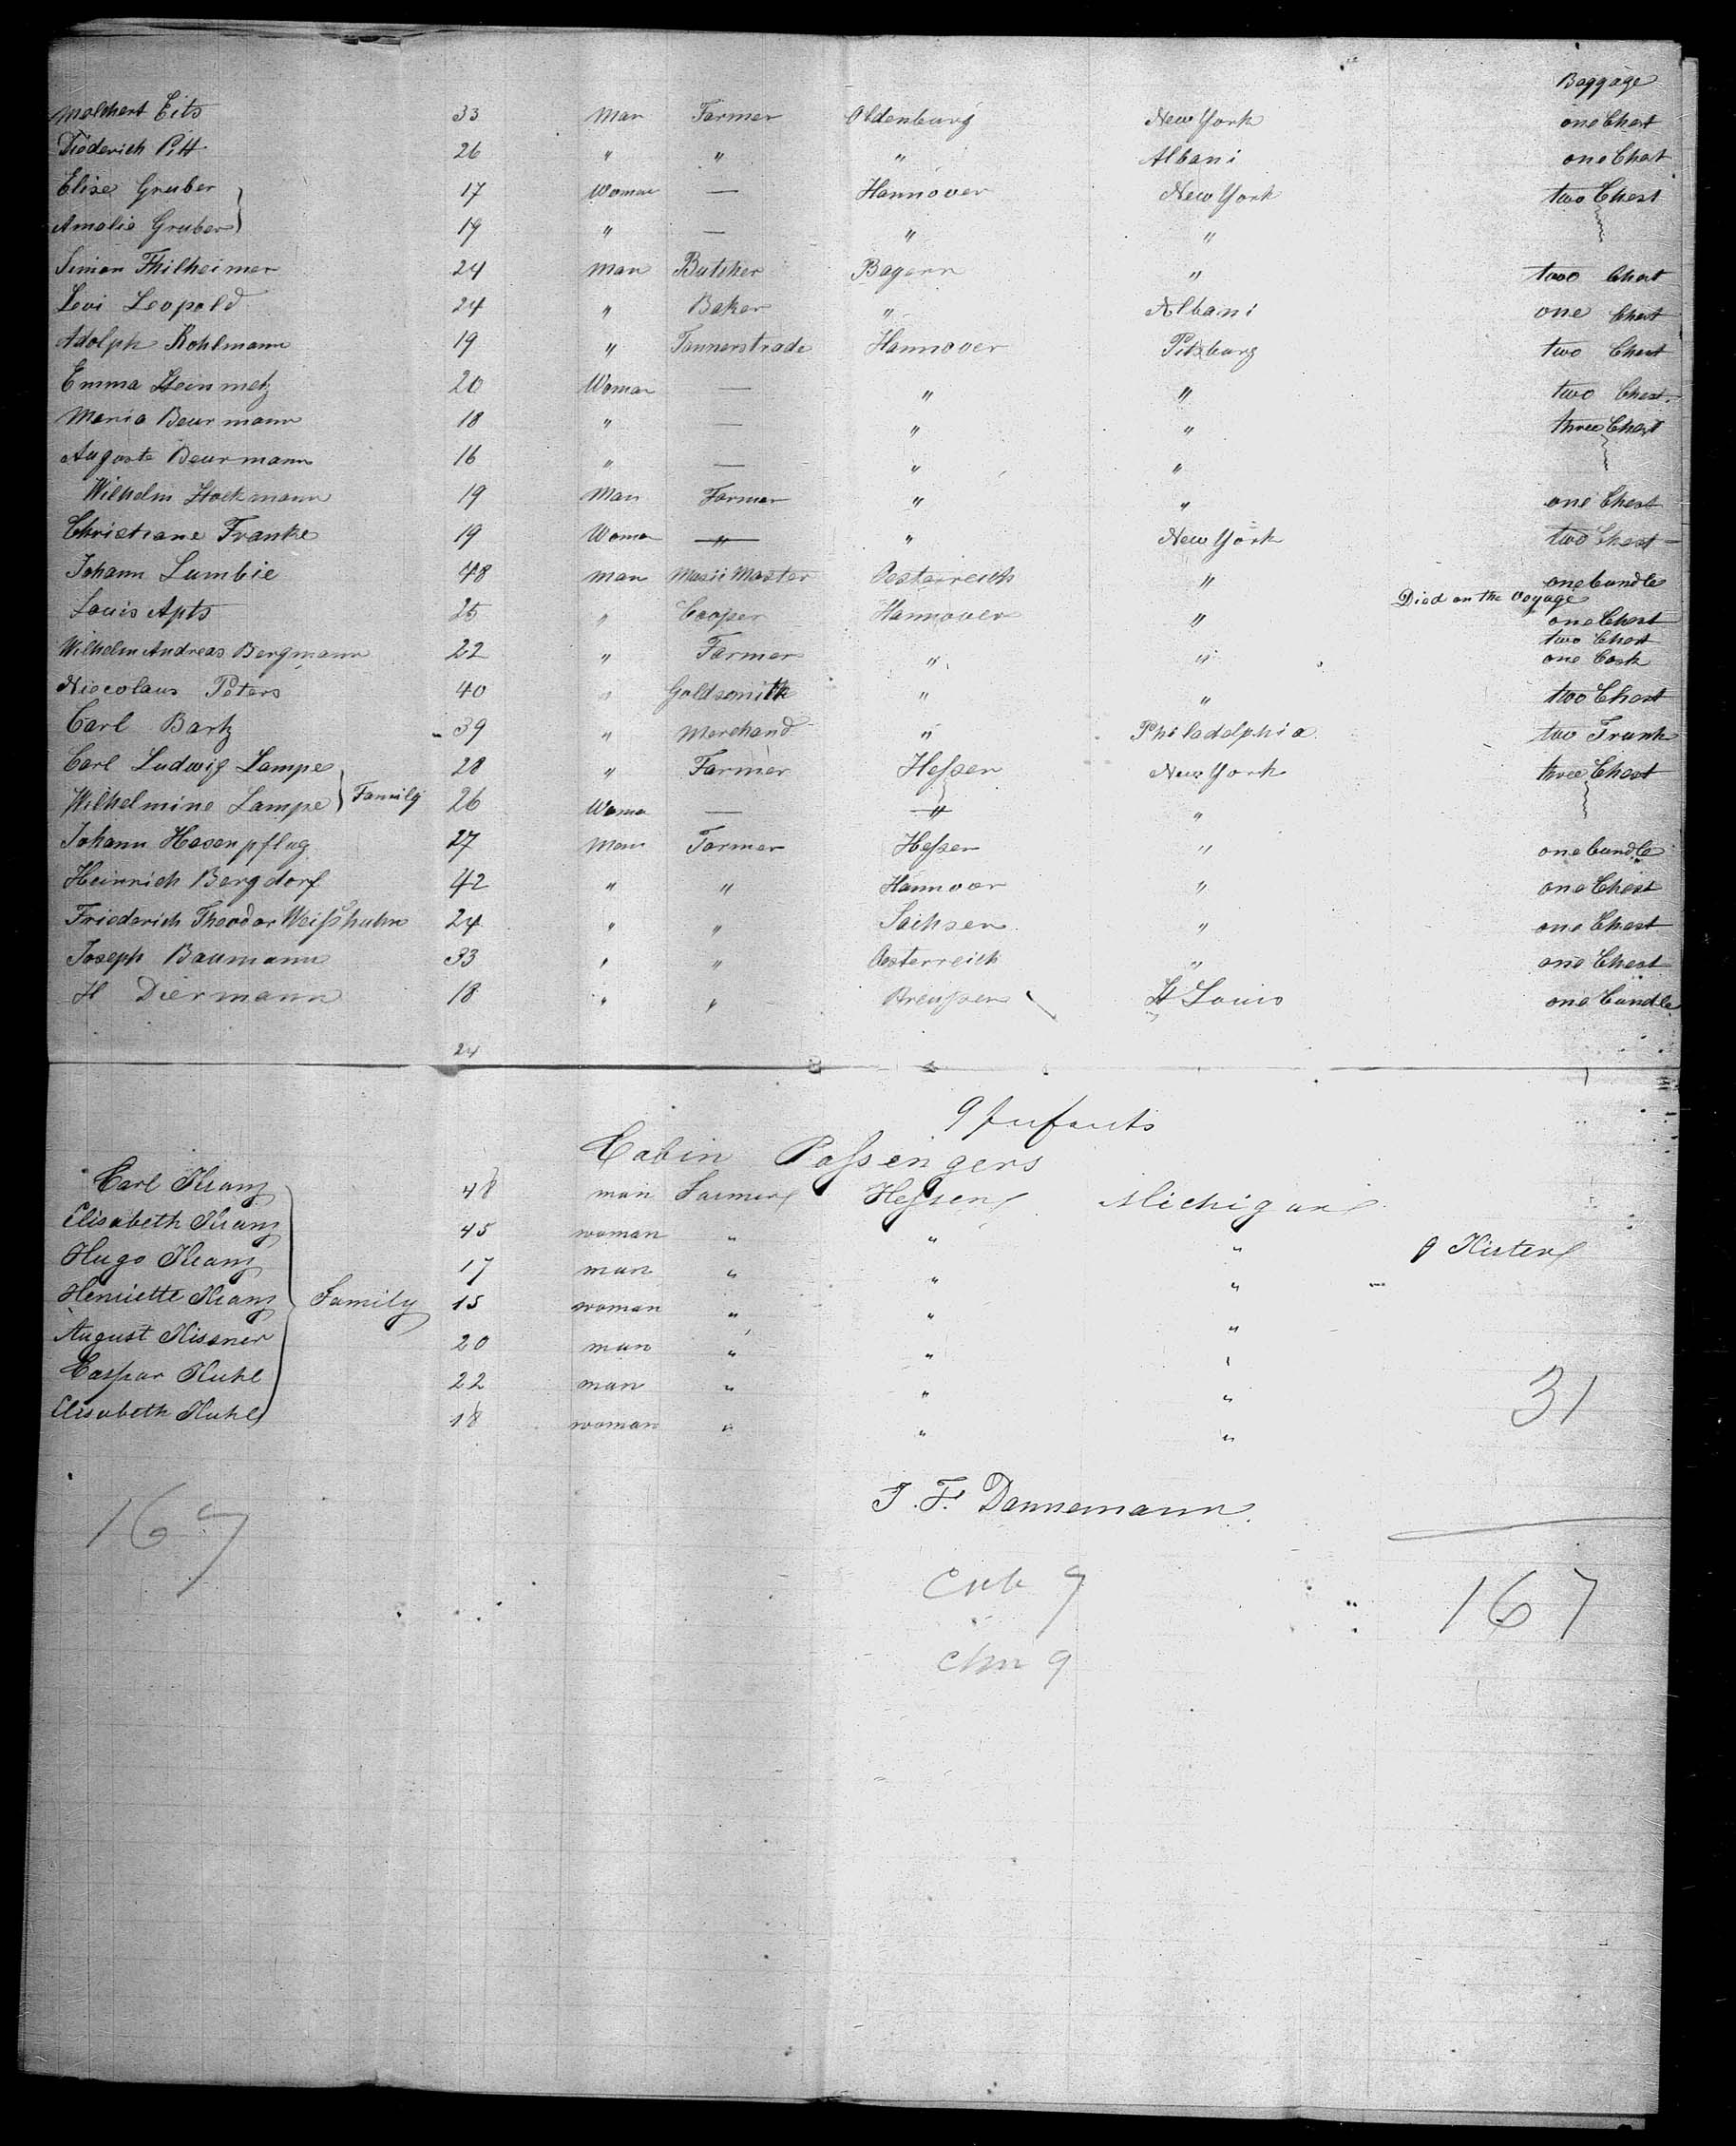 Baggage
Melchert Eits 33 Man Farmer Oldenburg New York one Chest
Diederich Pitt 26 " " " Albani one Chest
Elise Gruber 17 Woman — Hannover New York two Chest
Amalie Gruber 19 " — " "
Simon Thilheimer 24 Man Butcher Bayern " two Chest
Levi Leopold 24 " Baker " Albani one Chest
Adolph Kohlmann 19 " Tannerstrade Hannover Pitsburg two Chest
Emma Steinmetz 20 Woman — " " two Chest
Maria Beurmann 18 " — " " three Chest
Auguste Beurmann 16 " — " "
Wilhelm Hockmann 19 Man Farmer " " one Chest
Christiane Franke 19 Woman — " New York two Chest
Johann Lumbie 48 man Master Oesterreich " one bundle
Died on the Voyage
Louis Apts 25 " Cooper Hannover " one Chest
Wilhelm Andreas Bergmann 22 " Farmer " " two Chest
one Cask
Niecolaus Peters 40 " Goldsmith " " two Chest
Carl Bartz 39 " Merchand " Philadelphia two Trunk
Carl Ludwig Lampe 28 " Farmer Heſsen New York three Chest
Wilhelmine Lampe Family 26 Woman — " "
Johann Hasenpflug 27 Man Farmer Heſsen " one bundle
Heinrich Bergdorf 42 " " Hannover " one Chest
Friederich Theodor Weiſshuhn 24 " " Sachsen " one Chest
Joseph Baumann 33 " " Oesterreich " one Chest
H Diermann 18 " " Preuſsen St Louis one bundle
24
9 Infants
Cabin Paſsengers
Carl Kranz 48 man Farmer Heſsen Michigan
Elisabeth Kranz 45 woman " " "
9 Kisten
Hugo Kranz 17 man " " "
Henriette Kranz Family 15 woman " " "
August Kissner 20 man " " "
Caspar Kuhl 22 man " " "
31
Elisabeth Kuhl 18 woman " " "
J. F. Dannemann
167
Cab 7
167
Chn 9